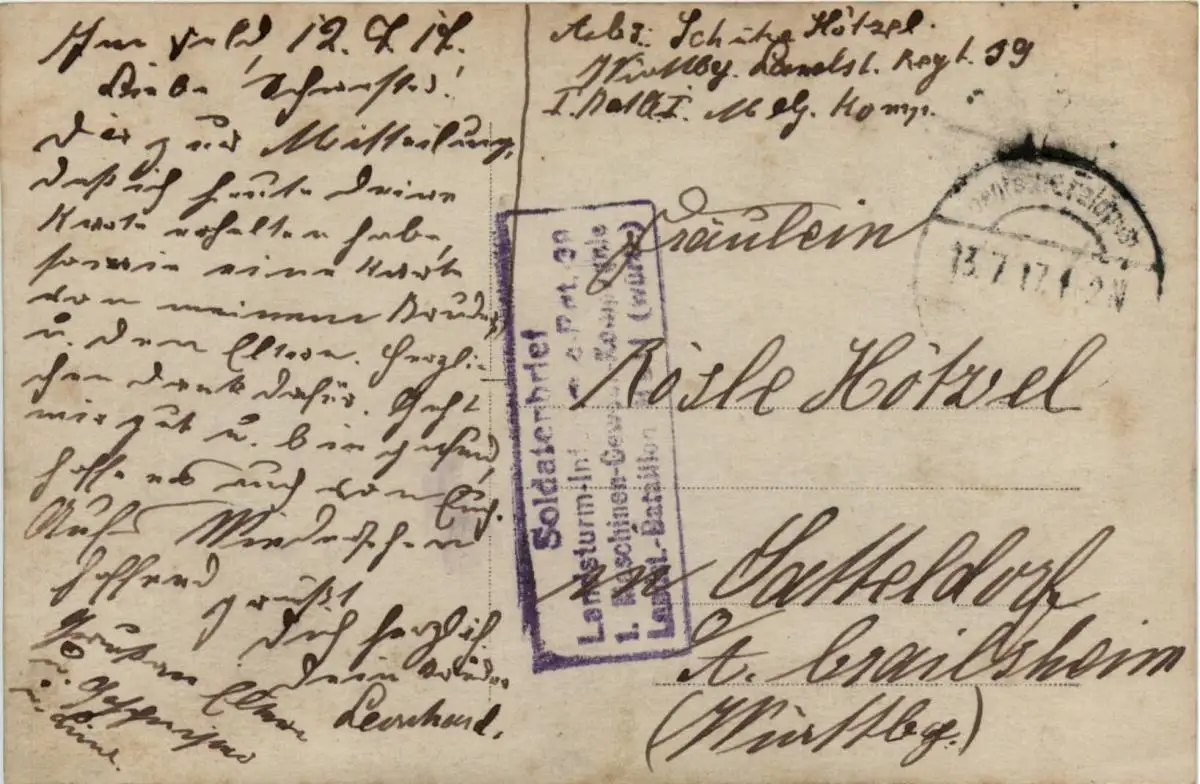 Im Feld, 12. 7. 17.
Liebe Schwester!
Dir zur Mitteilung,
daß ich heute deine
Karte erhalten habe,
sowie eine Karte
von meinem Bruder
u. den Eltern. Herzli-
chen dank dafür. Geht
mir gut u. bin gesund,
hoffe es auch von Euch.
Auf Wiedersehen
hoffend
grüßt
Dich herzlich
dein Bruder
Leonhard.
Eltern
u. Geschwister
Abs: Schütze Hötzel.
Württbg. Landst. Regt. 39
I. Batl. I. M. G. Komp.
Fräulein
Rösle Hötzel
in Satteldorf
A. Crailsheim
(Württbg.)
Soldatenbrief
Landsturm-Inf. 39
1. Maschinen-Gewehr-Kompagnie
Landst.-Bataillon (Württ)
13.7.17.